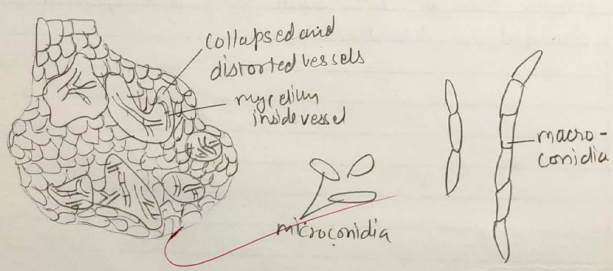 collapsed and
distorted vessels
mycelium
inside vessel
microconidia
macro-
conidia